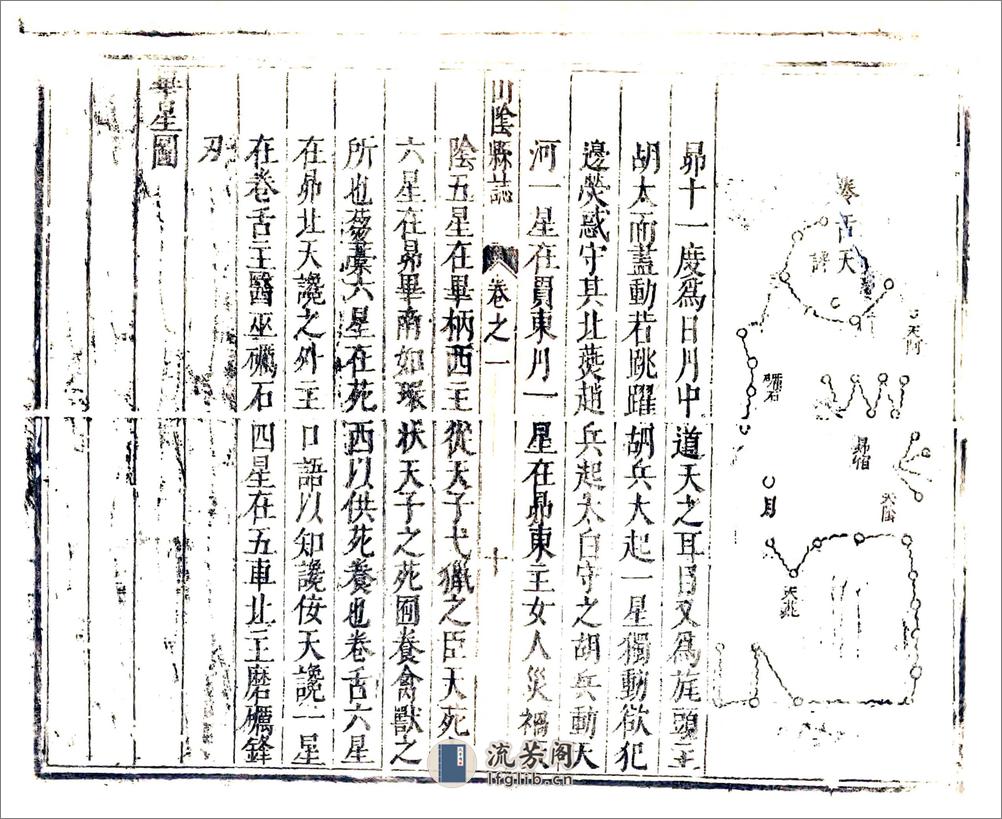 卷舌天
讒
天阿
礪石
昴宿
月
昴十一度爲日月中道天之耳目又爲旄頭主
胡大而盡動若跳躍胡兵大起一星獨動欲犯
邊熒惑守其北燕趙兵起太白守之胡兵動天
河一星在胃東月一星在昴東主女人災禍天
山陰縣誌 卷之一 十
陰五星在畢柄西主從天子弋獵之臣天苑
六星在昴畢南如環狀天子之苑囿養禽獸之
所也蒭藁六星在苑西以供苑養也卷舌六星
在昴北天讒之外主口語以知讒佞天讒一星
在卷舌主醫巫礪石四星在五車北主磨礪鋒
刃
畢星圖
流芳阁
lfglib.cn